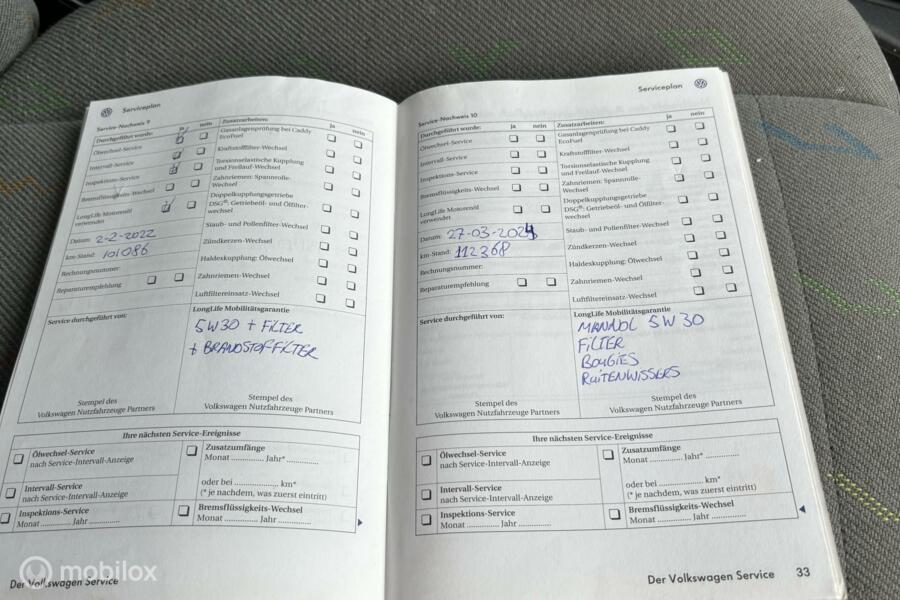 Serviceplan
Service-Nachweis 9
Durchgeführt wurde: ja nein
Ölwechsel-Service
Intervall-Service
Inspektions-Service
Bremsflüssigkeits-Wechsel
LongLife Motorenöl
verwendet
Datum: 2-2-2022
km-Stand: 101086
Rechnungsnummer:
Reparaturempfehlung
Zusatzarbeiten: ja nein
Gasanlagenprüfung bei Caddy
EcoFuel
Kraftstofffilter-Wechsel
Torsionselastische Kupplung
und Freilauf-Wechsel
Zahnriemen: Spannrolle-
Wechsel
Doppelkupplungsgetriebe
DSG®: Getriebeöl- und Ölfilter-
wechsel
Staub- und Pollenfilter-Wechsel
Zündkerzen-Wechsel
Haldeskupplung: Ölwechsel
Zahnriemen-Wechsel
Luftfiltereinsatz-Wechsel
Service durchgeführt von:
LongLife Mobilitätsgarantie
5W30 + FILTER
+ BRANDSTOFFILTER
Stempel des
Volkswagen Nutzfahrzeuge Partners
Stempel des
Volkswagen Nutzfahrzeuge Partners
Ihre nächsten Service-Ereignisse
Ölwechsel-Service
nach Service-Intervall-Anzeige
Intervall-Service
nach Service-Intervall-Anzeige
Inspektions-Service
Monat ............ Jahr ............
Zusatzumfänge
Monat ............ Jahr* ............
oder bei ............ km*
(* je nachdem, was zuerst eintritt)
Bremsflüssigkeits-Wechsel
Monat ............ Jahr ............
Der Volkswagen Service
Serviceplan
Service-Nachweis 10
Durchgeführt wurde: ja nein
Ölwechsel-Service
Intervall-Service
Inspektions-Service
Bremsflüssigkeits-Wechsel
LongLife Motorenöl
verwendet
Datum: 27-03-2024
km-Stand: 112368
Rechnungsnummer:
Reparaturempfehlung
Zusatzarbeiten: ja nein
Gasanlagenprüfung bei Caddy
EcoFuel
Kraftstofffilter-Wechsel
Torsionselastische Kupplung
und Freilauf-Wechsel
Zahnriemen: Spannrolle-
Wechsel
Doppelkupplungsgetriebe
DSG®: Getriebeöl- und Ölfilter-
wechsel
Staub- und Pollenfilter-Wechsel
Zündkerzen-Wechsel
Haldeskupplung: Ölwechsel
Zahnriemen-Wechsel
Luftfiltereinsatz-Wechsel
Service durchgeführt von:
LongLife Mobilitätsgarantie
MANNOL 5W30
FILTER
BOUGIES
RUITENWISSERS
Stempel des
Volkswagen Nutzfahrzeuge Partners
Stempel des
Volkswagen Nutzfahrzeuge Partners
Ihre nächsten Service-Ereignisse
Ölwechsel-Service
nach Service-Intervall-Anzeige
Intervall-Service
nach Service-Intervall-Anzeige
Inspektions-Service
Monat ............ Jahr ............
Zusatzumfänge
Monat ............ Jahr* ............
oder bei ............ km*
(* je nachdem, was zuerst eintritt)
Bremsflüssigkeits-Wechsel
Monat ............ Jahr ............
Der Volkswagen Service 33
mobilox